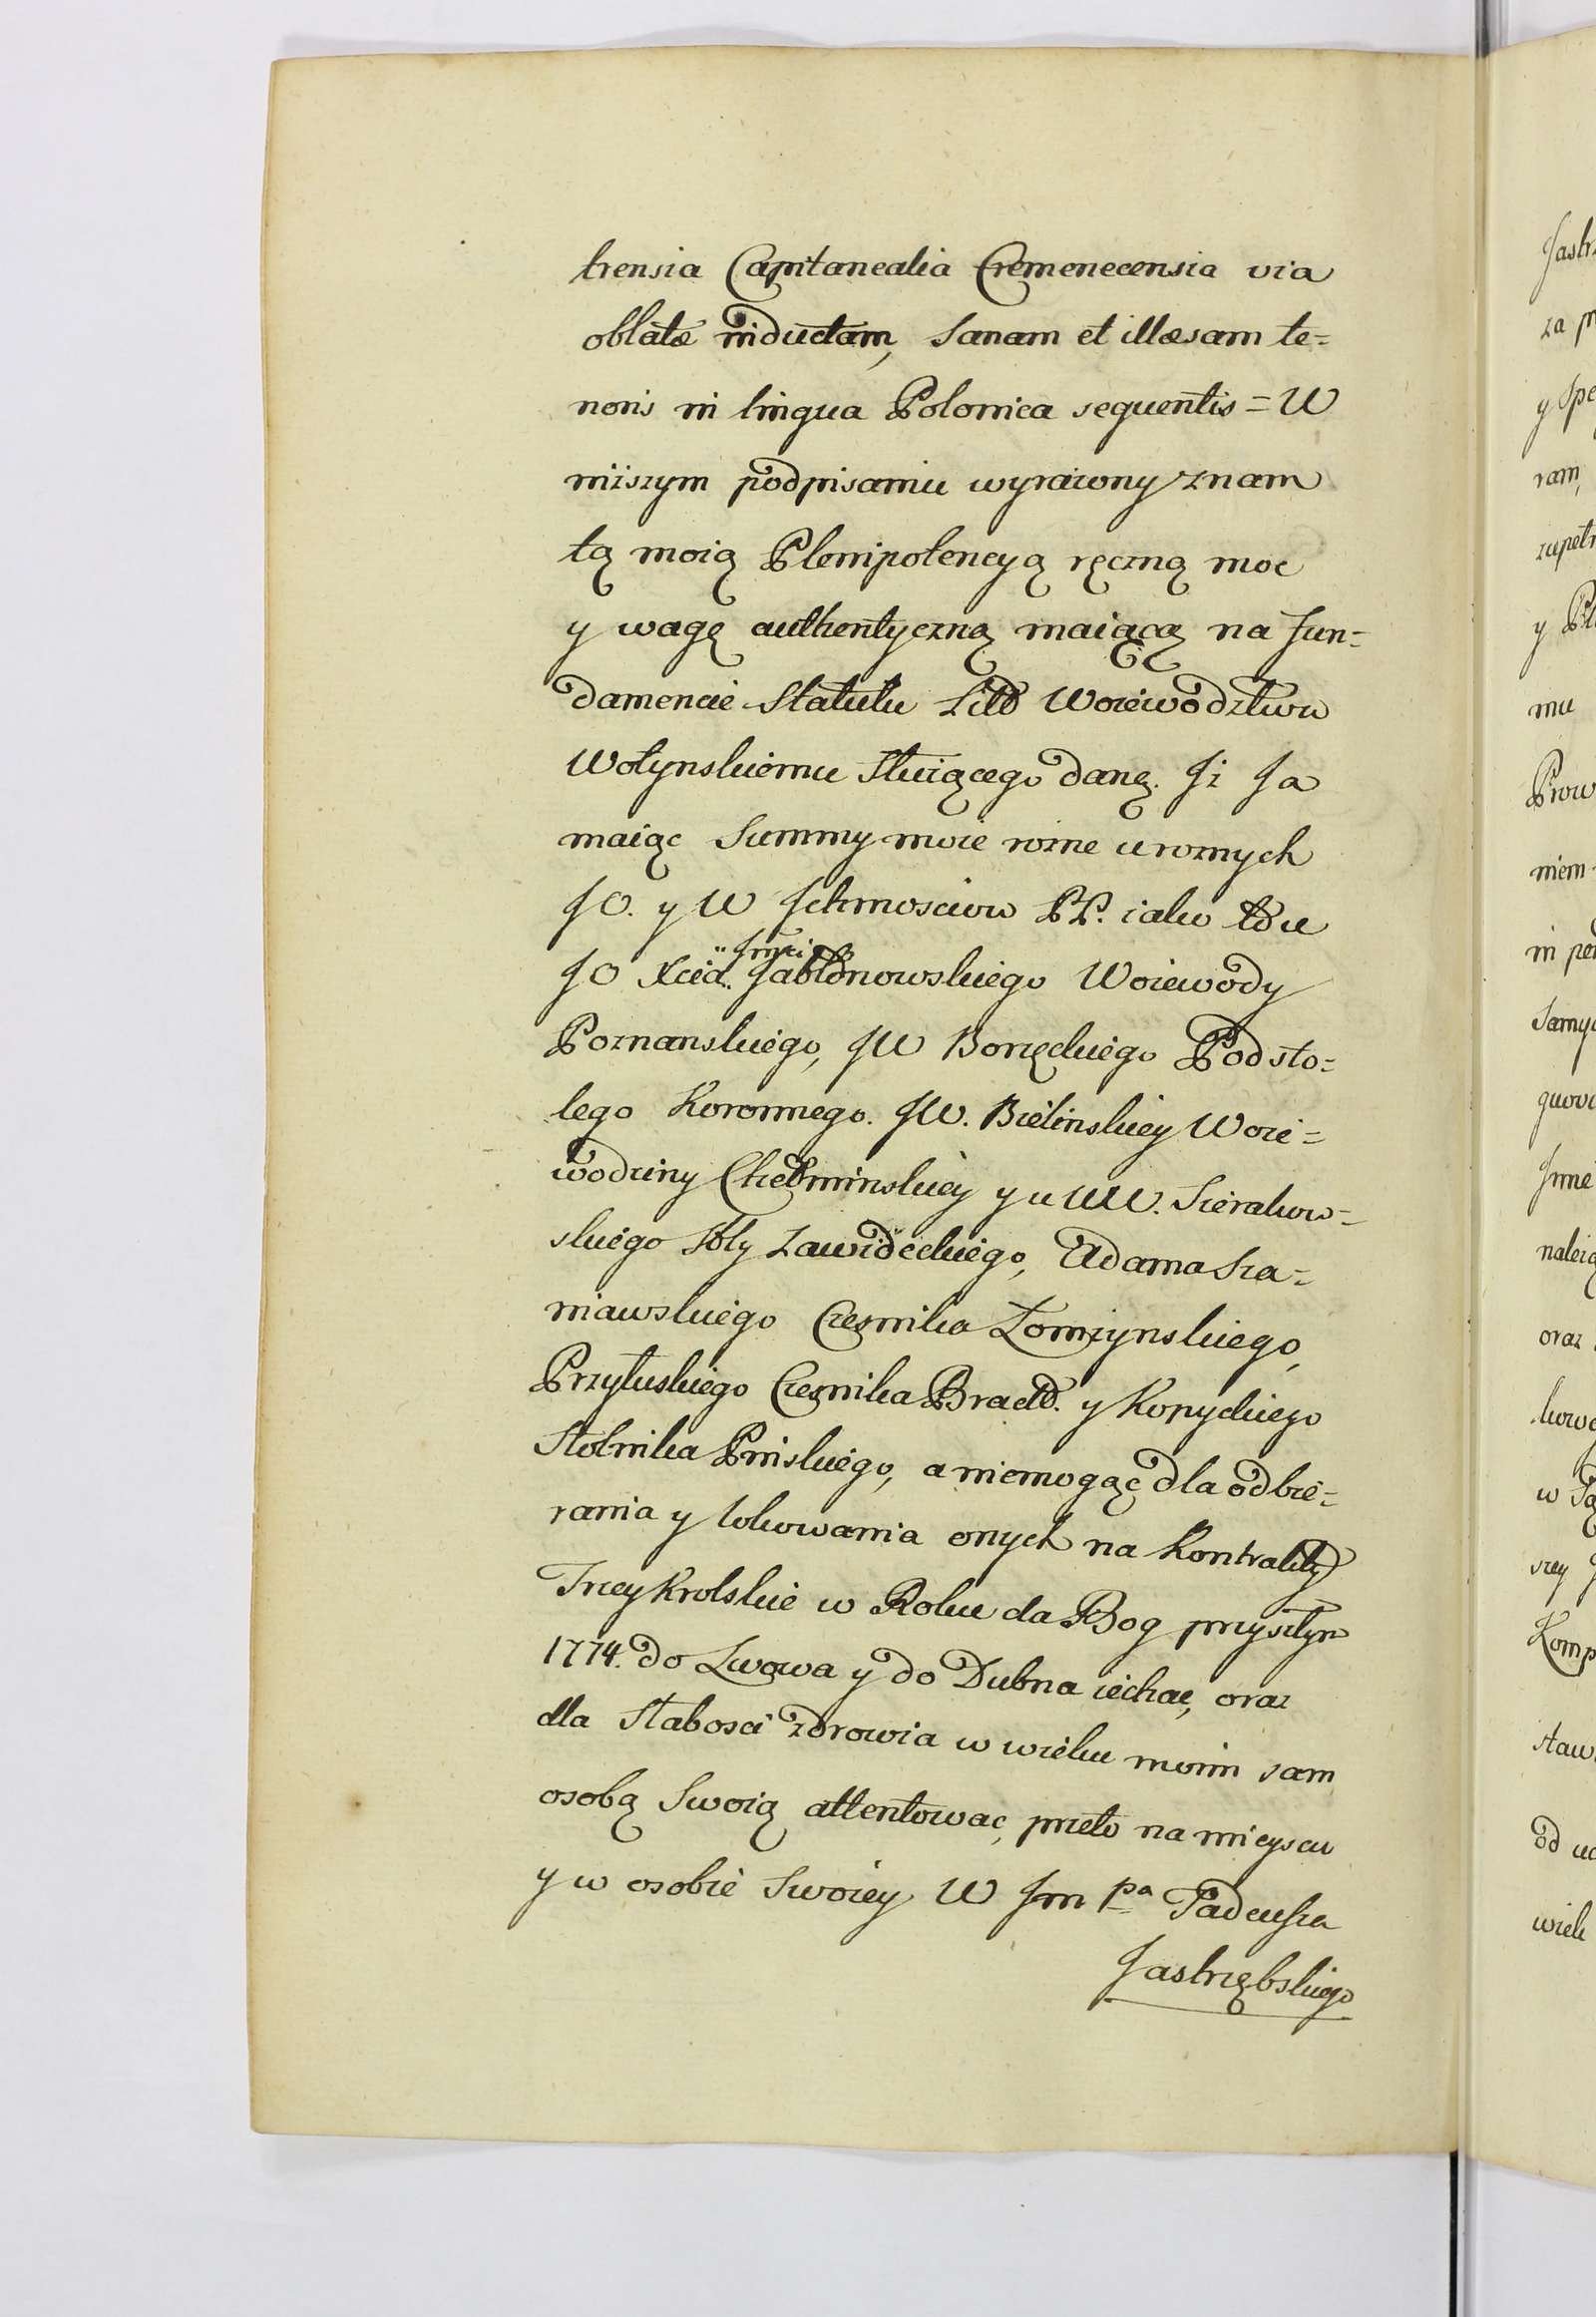 trensia Capitanealia Cremenecensia via
oblatæ inductam, Sanam et illæsam te=
noris in lingua Polonica sequentis = W
niższym podpisaniu wyrażony znam
tą moią Plenipotencyą ręczną moc
y wagę authentyczną maiącą na fun=
damencie Statutu Litt Woiewodztwu
Wołynskiemu służącego daną. Jż Ja
maiąc Summy moie rożne u rożnych
JO. y W Jchmosciow PP. iako tdu
Jmści
JO Xcia. Jabłonowskiego Woiewody
Poznanskiego, JW Borzęckiego Podsto=
lego Koronnego. JW. Bielinskiey Woie=
wodziny Chełminskiey y u WW. Sierakow=
skiego Sty Zawideckiego, Adama Sza=
niawskiego Czesnika Łomżynskiego,
Przyłuskiego Czesnika Bracld. y Kopyckiego
Stolnika Pinskiego, a niemogąc dla odbie=
rania y lokowania onych na Kontrakty
Trzey Krolskie w Roku da Bog przyszłym
1774. do Lwowa y do Dubna iechac, oraz
dla słabosci zdrowia w wieku moim sam
osobą Swoią attentowac, przeto na mieyscu
y w osobie Swoiey W Jm pa Tadeusza
Jastrzębskiego
Jastrz
za pr
y Spe
ram,
zupełn
y Ple
mu
Prow
niem
in per
Samyc
quovi
Jmie
należą
oraz
kowa
w Są
szey
Komp
staw
od uc
wiek